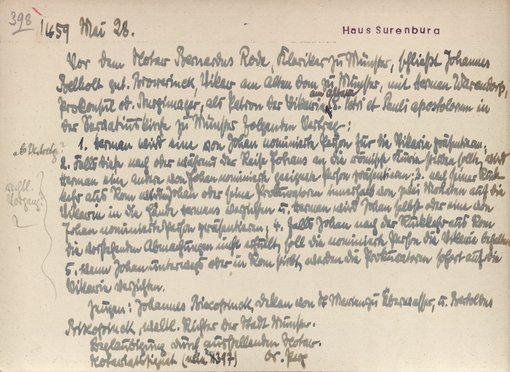 398
1459 Mai 28.
Haus Surenburg
Vor dem Notar Bernardus Rode, Kleriker zu Münster, schließt Johannes
Vikar am Alten Dom zu Münster, mit Herman Warendorp,
Proconsul od. Burgimager, als Patron der Vikarie am Altare Ss. Petri et Pauli apostolorum in
der Servatiuskirche zu Münster folgenden Vertrag:
1. Herman wird eine von Johan nominierte Person für die Vikarie präsentieren;
2. Falls diese nach oder während der Reise Johans an die römische Kurie sterben soll, wird
Herman ein andere von Johan nominierte geeignete Person präsentieren; 3. nach seiner Rück-
kehr aus Rom Johan oder seine Prokuratoren innerhalb von zwei Monaten auf die
Vikarie in die Hände Hermans verzichten u. Herman wird Johan selbst oder eine von
Johan nominierte Person präsentieren; 4. Falls Johan nach der Rückkehr aus Rom
die vorstehenden Abmachungen nicht erfüllt, soll die nominierte Person die Vikarie behalten
5. Wenn Johan unterwegs oder in Rom stirbt, werden die Prokuratoren sofort auf die
Vikarie verzichten.
Zeugen: Johannes Biscopinck, Dekan von St Marien zu Überwasser, u. Bertoldus
Biscopinck, weltl. Richter der Stadt Münster.
Beglaubigung durch ausstellenden Notar.
Notariatssignet